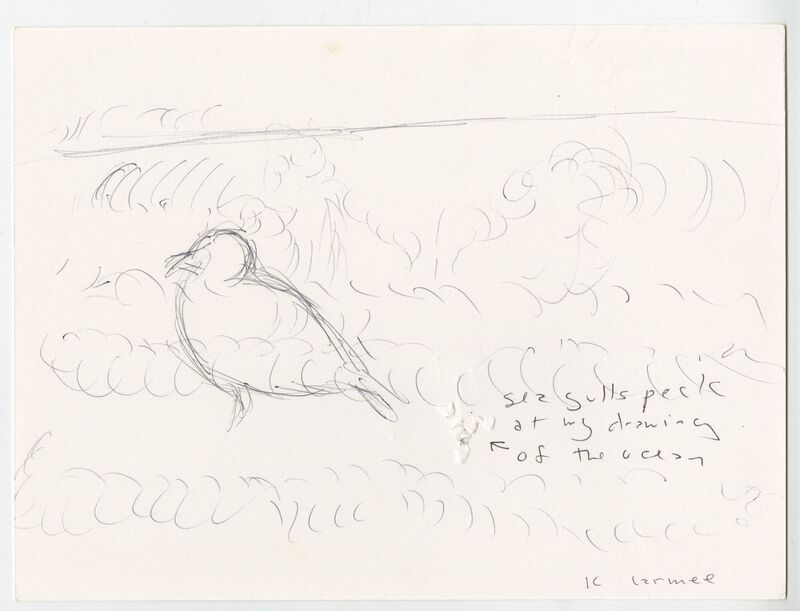 sea gulls peck
at my drawing
of the ocean
K Larmee